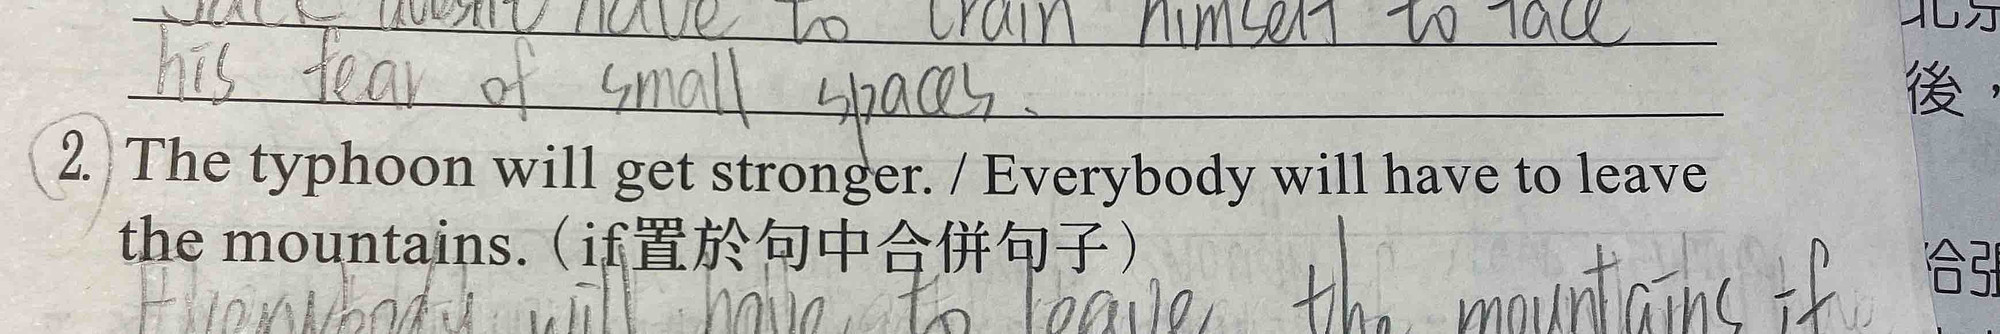 Jack doesn't have to train himself to face
his fear of small spaces.
2. The typhoon will get stronger. / Everybody will have to leave
the mountains.（if置於句中合併句子）
Everybody will have to leave the mountains if
北京
後，